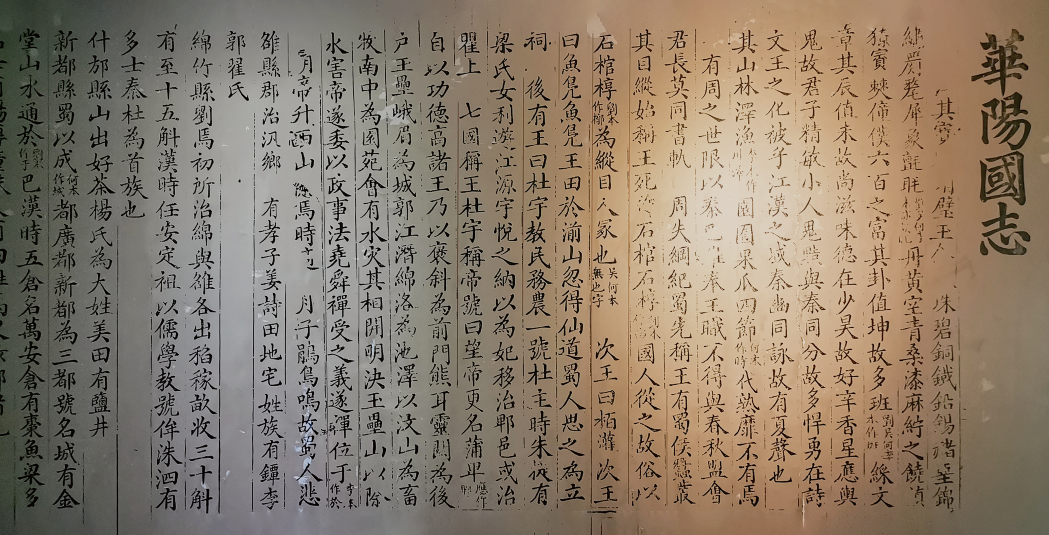 華陽國志
其寶 璧玉 珠碧銅鐵鉛錫赭堊錦
繡罽氂犀象氈毦丹黃空青桑漆麻紵之饒
賨僰僮僕六百之富其卦值坤故多班 綵文
章其辰值未故尚滋味德在少昊故好辛香星應輿
鬼故君子精敏小人鬼黠與秦同分故多悍勇在詩
文王之化被乎江漢之域秦豳同詠故有夏聲也
其山林澤漁 園囿果瓜四節 代熟靡不有焉
有周之世限以秦巴 奉王職不得與春秋盟會
君長莫同書軌 周失綱紀蜀先稱王有蜀侯蠶叢
其目縱始稱王死 石棺石椁 國人從之故俗以
石棺椁 為縱目人冢也 吳何本無也字 次王曰栢灌 次王
曰魚鳧魚鳧王田於湔山忽得仙道蜀人思之為立
祠 後有王曰杜宇教民務農一號杜主時朱提有
梁氏女利遊江源宇悅之納以為妃移治郫邑或治
瞿上 七國稱王杜宇稱帝號曰望帝更名蒲卑
自以功德高諸王乃以褒斜為前門熊耳靈關為後
戶玉壘峨眉為城郭江潛綿洛為池澤以汶山為畜
牧南中為園苑會有水災其相開明決玉壘山以除
水害帝遂委以政事法堯舜禪受之義遂禪位于 李本作於
月帝升西山 焉時 月子鵑鳥鳴故蜀人悲
雒縣郡治汎鄉 有孝子姜詩田地宅姓族有鐔李
郭翟氏
綿竹縣劉焉初所治綿與雒各出稻稼畝收三十斛
有至十五斛漢時任安定祖以儒學教號侔洙泗有
多士秦杜為首族也
什邡縣山出好茶楊氏為大姓美田有鹽井
新都縣蜀以成 何本作城 都廣都新都為三都號名城有金
堂山水通於 巴漢時五倉名萬安倉有棗魚梁多